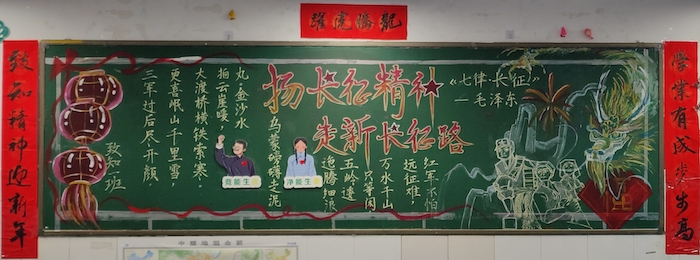 龍騰虎躍
学業有成步步高
致知精神迎新年
扬长征精神
走新长征路
《七律·长征》
—毛泽东
红军不怕
远征难,
万水千山
只等闲
五岭逶
迤腾细浪
乌蒙磅礴走泥
丸,金沙水
拍云崖暖,
大渡桥横铁索寒.
更喜岷山千里雪,
三军过后尽开颜
致知一班